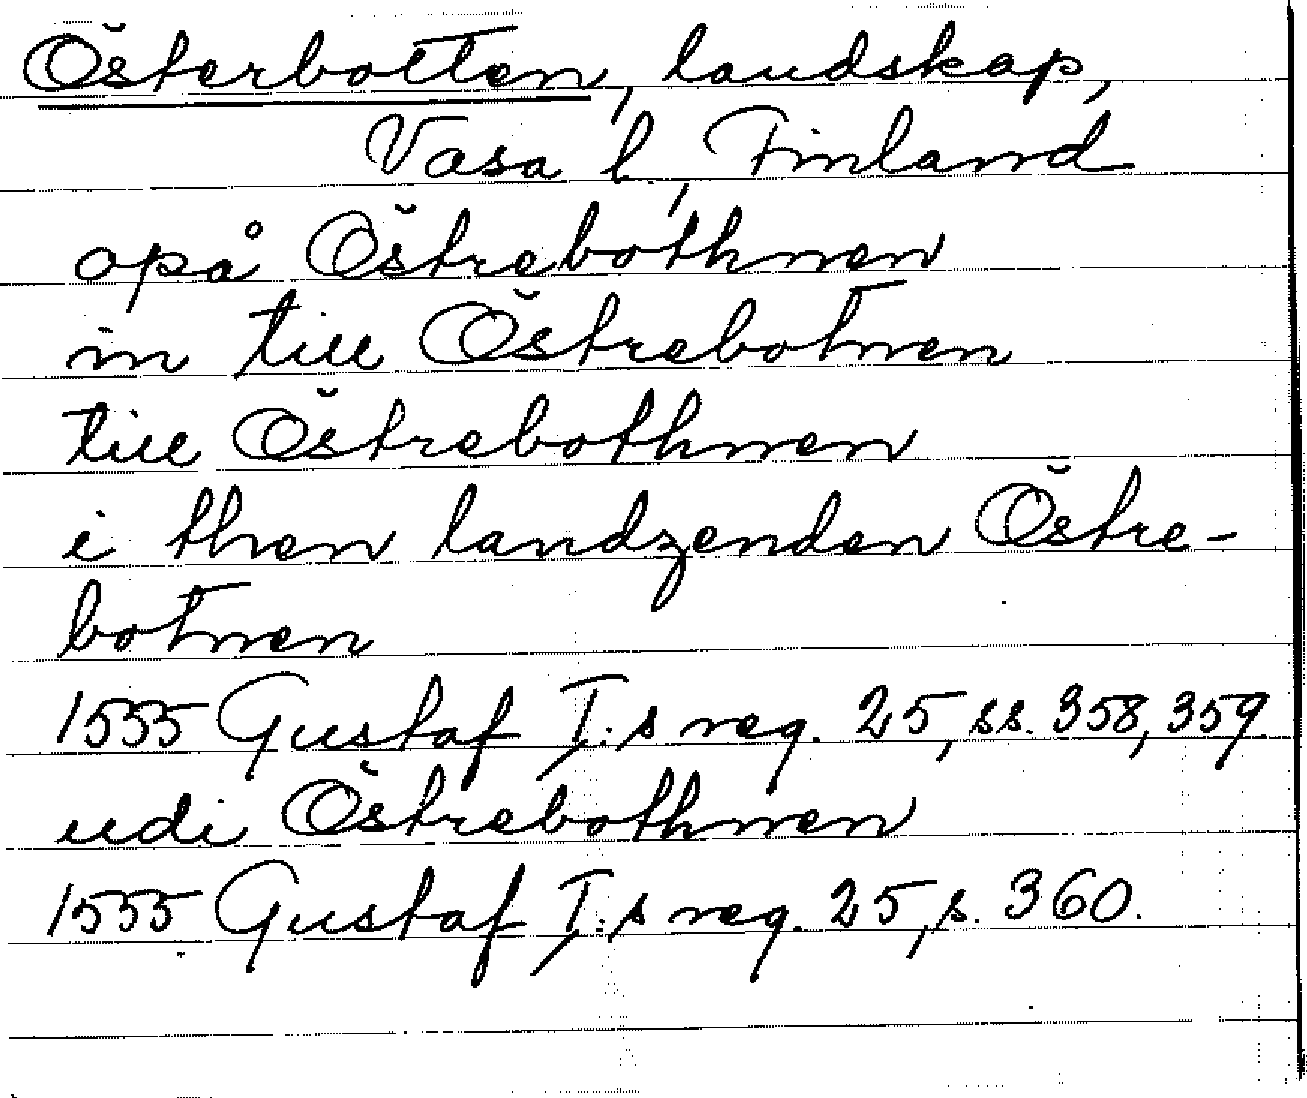 Österbotten, landskap,
Vasa l, Finland
opå Östrebothnen
in till Östrebotnen
till Östrebothnen
i then landzenden Östre-
botnen
1555 Gustaf I:s reg. 25, ss. 358, 359.
udi Östrebothnen
1555 Gustaf I:s reg. 25, s. 360.